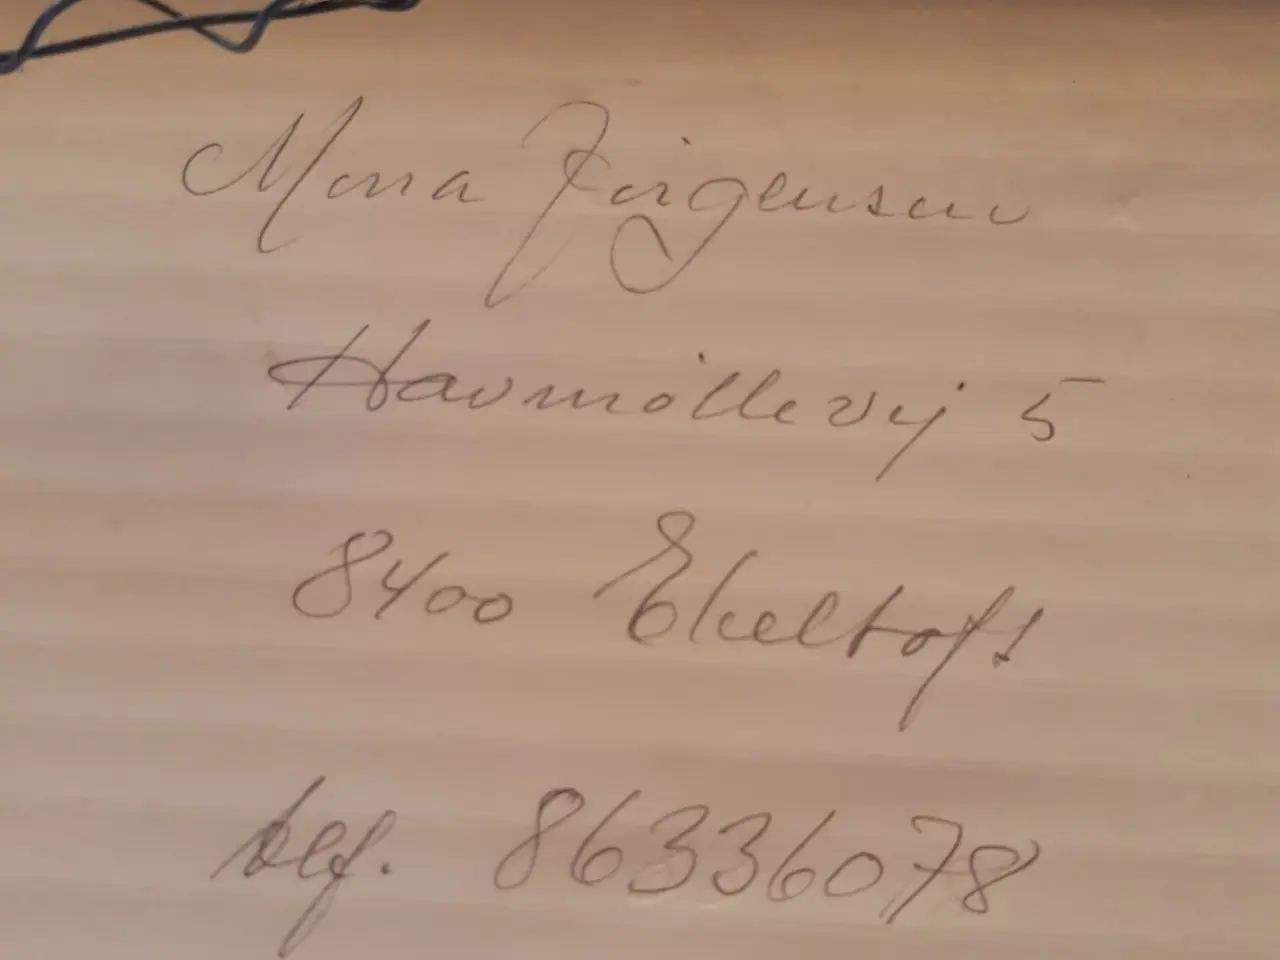 Mona Jörgensen
Havmöllevej 5
8400 Ebeltoft
telf. 86336078